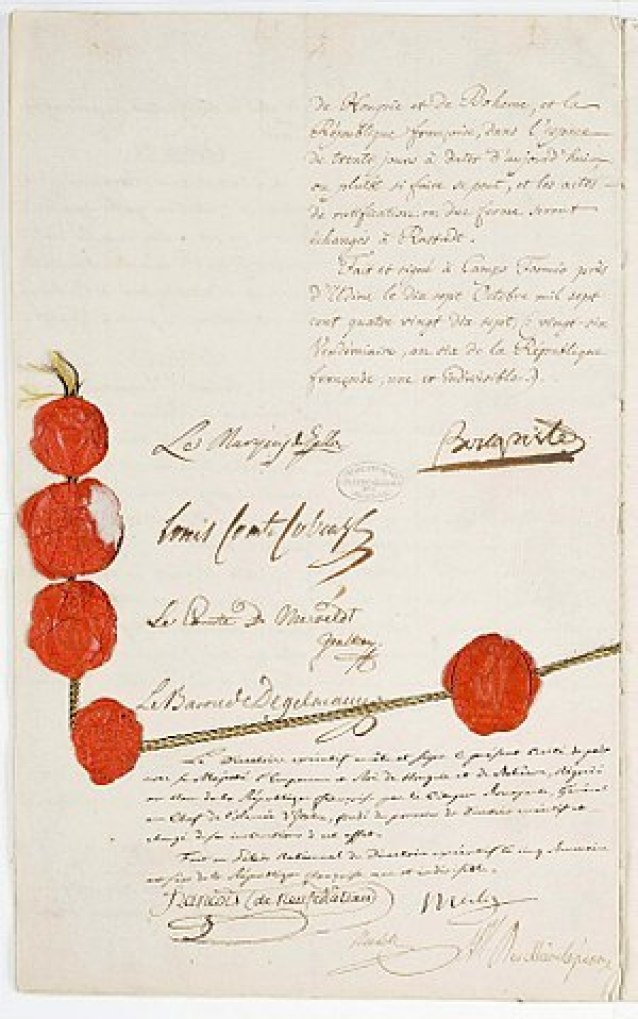 de Hongrie et de Boheme, et la
République françoise, dans l'espace
de trente jours à dater d'aujourd'hui
ou plutôt si faire se peut, et les actes
de ratification en due forme seront
échangés à Rastadt.
Fait et signé à Campo Formio près
d'Udine le dix sept Octobre mil sept
cent quatre vingt dix sept, (vingt-six
Vendémiaire, an six de la République
françoise, une et indivisible.)
Le Marquis de Gallo
Bonaparte
Louis Comte Cobenzl
Le Comte De Meerveldt
Le Baron de Degelmann
Le Directoire exécutif arrête et signe le présent traité de paix
avec sa Majesté l'Empereur et Roi de Hongrie et de Bohême, négocié
au nom de la République française par le Citoyen Bonaparte, Général
en Chef de l'armée d'Italie, fondé de pouvoirs du Directoire exécutif et
chargé de ses instructions à cet effet.
Fait au Palais National du Directoire exécutif le cinq Brumaire
an six de la République française une et indivisible.
François (de Neufchateau)
Merlin